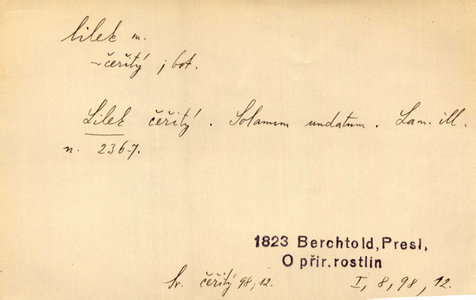 lilek m.
~čeřitý ; bot.
Lilek čeřitý. Solanum undatum. Lam. ill.
n. 2367.
1823 Berchtold, Presl,
O přir. rostlin
Sv. čeřitý 98, 12. I, 8, 98, 12.